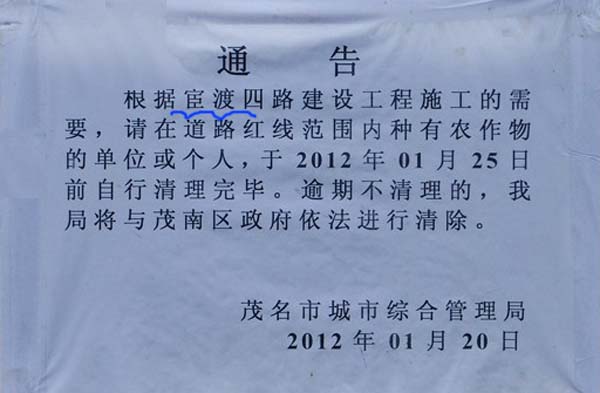 通 告
根据宦渡四路建设工程施工的需
要，请在道路红线范围内种有农作物
的单位或个人，于 2012 年 01 月 25 日
前自行清理完毕。逾期不清理的，我
局将与茂南区政府依法进行清除。
茂名市城市综合管理局
2012 年 01 月 20 日